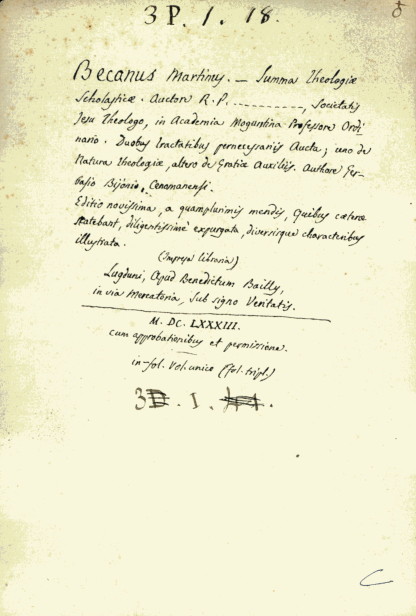 3 P. 1. 18.
Becanus Martinus. — Summa Theologiæ
Scholasticæ. Auctore R. P. ------------, Societatis
Jesu Theologo, in Academia Moguntina Professore Ordi
nario. Duobus tractatibus pernecessariis Aucta; uno de
Natura Theologiæ, altero de Gratiæ Auxiliis. Authore Ger-
basio Bijonio, Cenomanensi.
Editio novissima, a quamplurimis mendis, quibus cæteræ
scatebant, diligentissimè expurgata, diversisque characteribus
illustrata.
(Impresa libraria)
Lugduni, Apud Benedictum Bailly,
in via Mercatoria, sub signo Veritatis.
M. DC. LXXXIII.
cum approbationibus et permissione.
in-fol. Vol. unico (fol. tripl.)
3 . 1 .
C